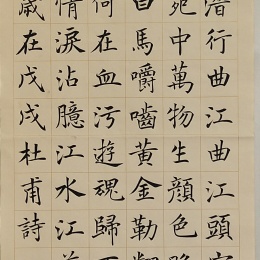 潛行曲江曲江頭宮
苑中萬物生顏色昭
白馬嚼嚙黃金勒翻
何在血污遊魂歸不
情淚沾臆江水江
歲在戊戌杜甫詩